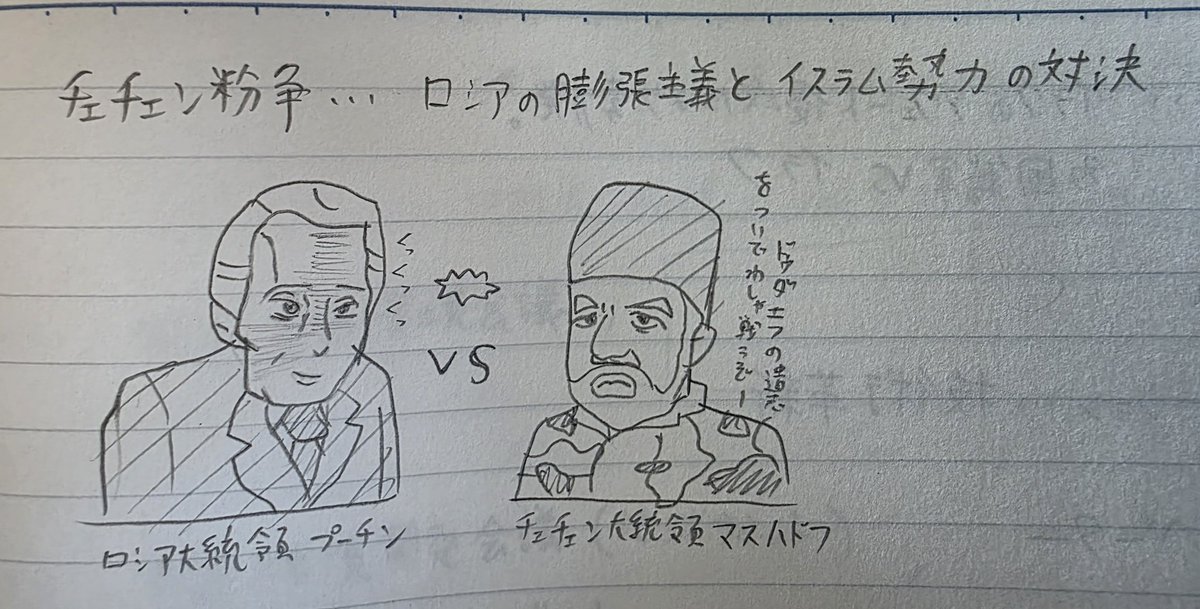 チェチェン紛争… ロシアの膨張主義と イスラム勢力 の対決
くっ
くっ
くっ
VS
ドゥダエフの遺志
をついでわしゃ戦うぞー
ロシア大統領 プーチン
チェチェン大統領 マスハドフ